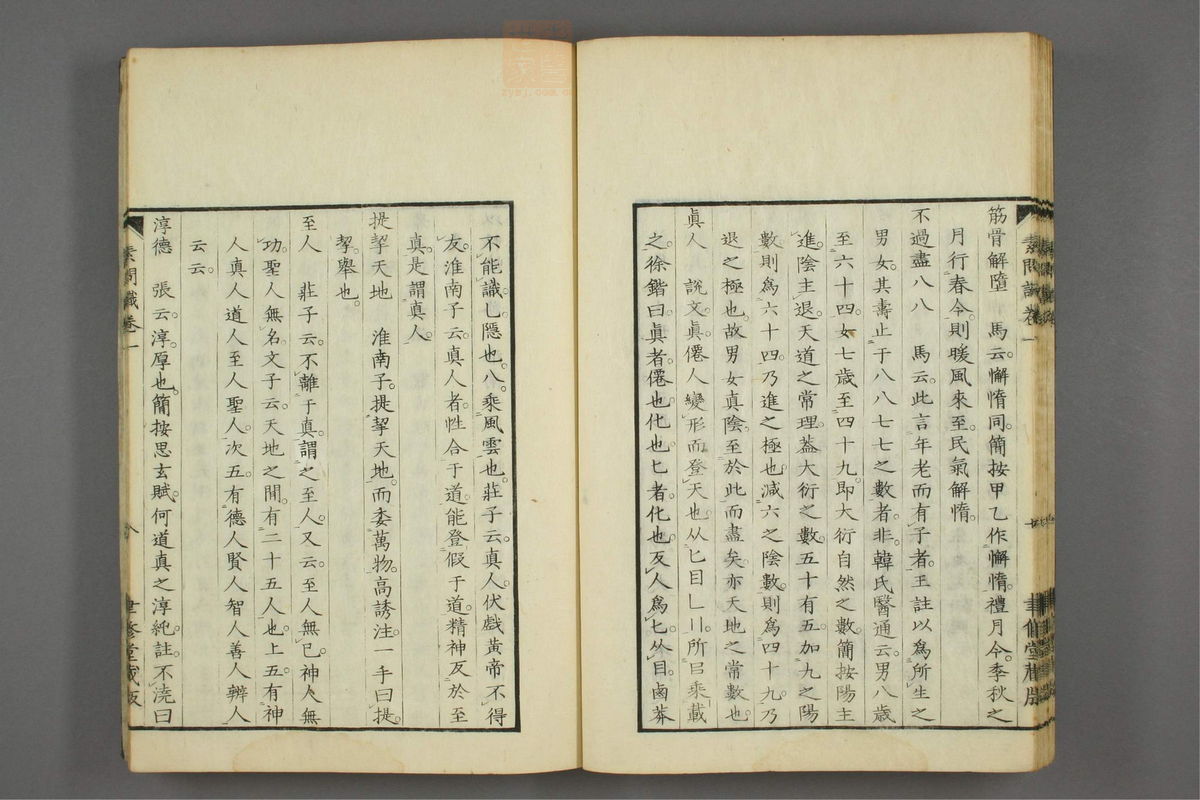 筋骨解墮　馬云。懈惰同。簡按甲乙作懈惰。禮月令。季秋之
月行春令。則暖風來至。民氣解惰。
不過盡八八　馬云。此言年老而有子者。王註以爲所生之
男女。其壽止于八八七七之數者。非。韓氏醫通云。男八歲
至六十四。女七歲至四十九。即大衍自然之數。簡按陽主
進。陰主退。天道之常理。蓋大衍之數。五十有五。加九之陽
數。則爲六十四。乃進之極也。減六之陰數。則爲四十九。乃
退之極也。故男女真陰。至於此而盡矣。亦天地之常數也。
眞人　說文。眞。僊人變形而登天也。从匕目乚。八。所㠯乘載
之。徐鍇曰。眞者。僊也。化也。匕者。化也。反人爲匕。从目。鹵莽
不能識。乚。隱也。八。乘風雲也。莊子云。真人。伏戲黃帝不得
友。淮南子云。真人者。性合于道。能登假于道。精神反於至
真。是謂真人。
提挈天地　淮南子。提挈天地。而委萬物。高誘注。一手曰提。
挈。舉也。
至人　莊子云。不離于真。謂之至人。又云。至人無己。神人無
功。聖人無名。文子云。天地之間。有二十五人也。上五有神
人真人道人至人聖人。次五有德人賢人智人善人辯人
云云。
淳德　張云。淳。厚也。簡按思玄賦。何道真之淳純。註。不澆曰
素問識卷一
聿修堂藏版